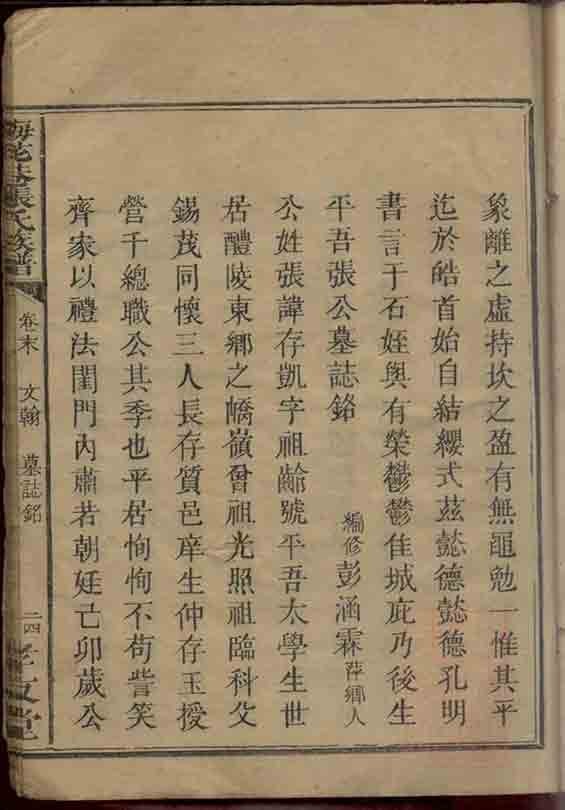 象離之虛持坎之盈有無黽勉一惟其平
迄於皓首始自結纓式茲懿德懿德孔明
書言于石姪與有榮鬱鬱佳城庇乃後生
平吾張公墓誌銘
編修彭涵霖萍鄉人
公姓張諱存凱字祖齡號平吾太學生世
居醴陵東鄉之嶠嶺曾祖光照祖臨科父
錫茂同懷三人長存質邑庠生仲存玉授
營千總職公其季也平居恂恂不苟訾笑
齊家以禮法閨門內肅若朝廷己卯歲公
張氏族譜
卷末
文翰
墓誌銘
二四
孝友堂